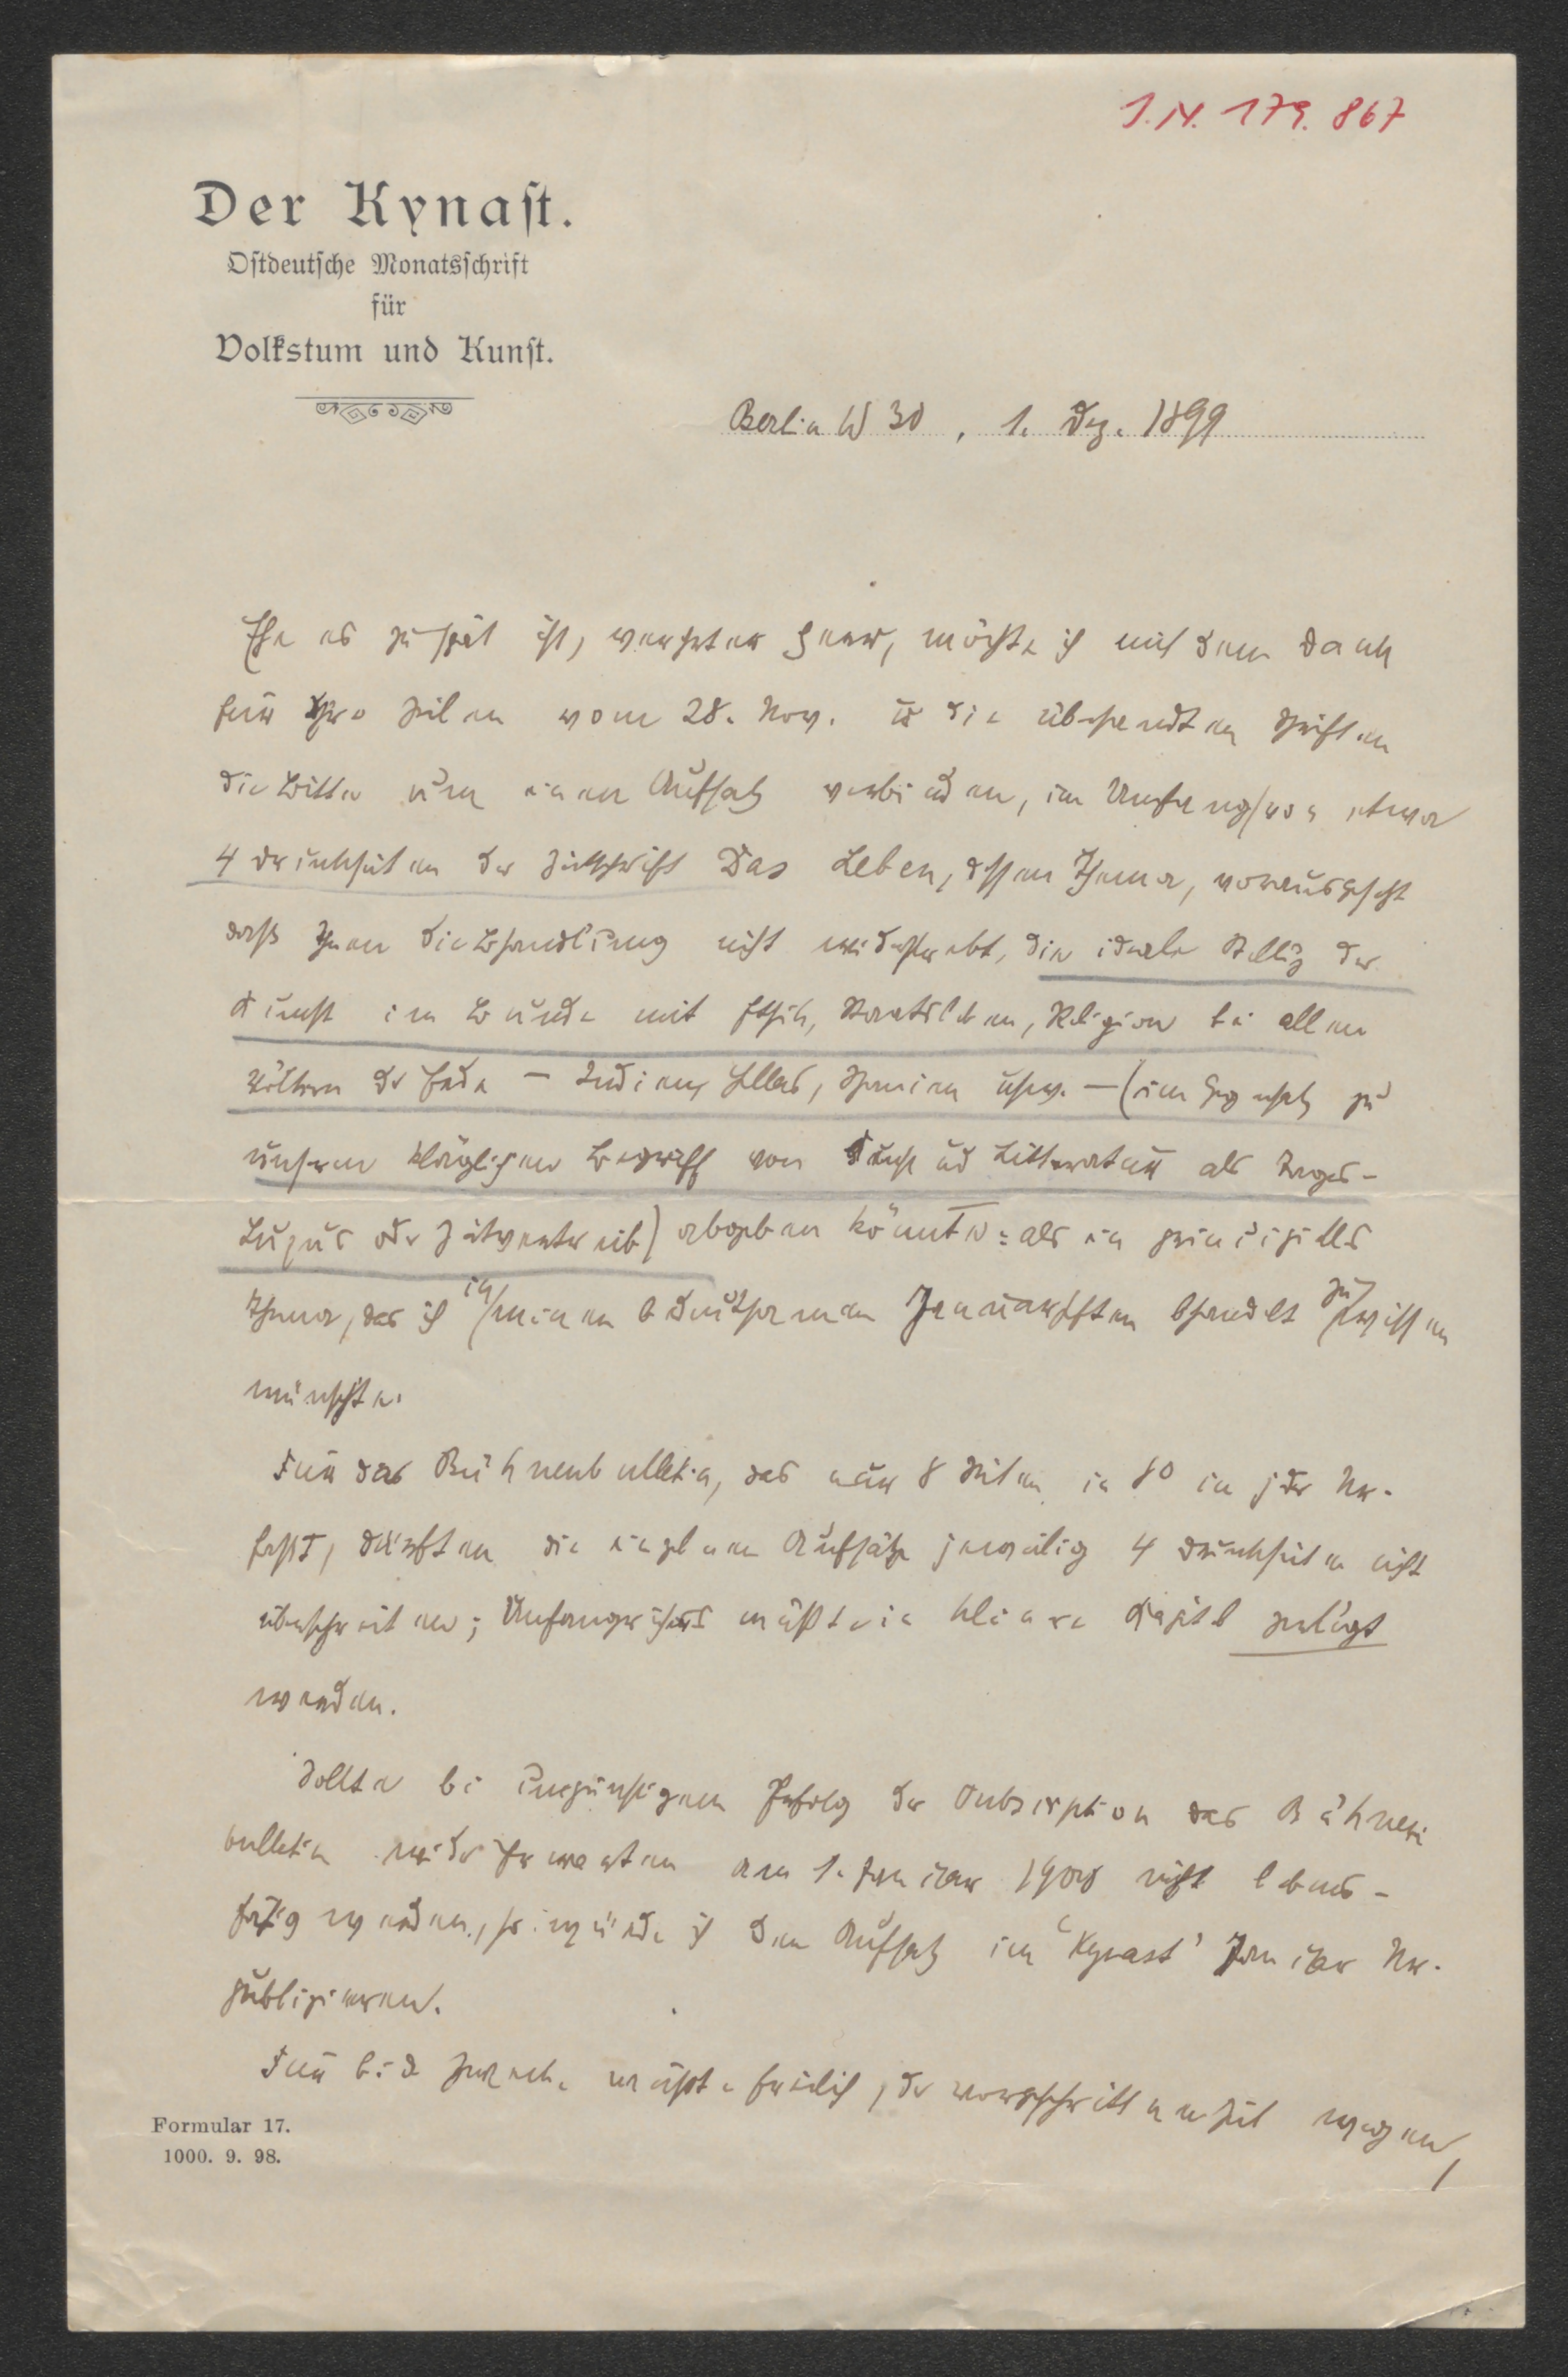 I. N. 179. 867
Der Kynaſt.
Oſtdeutſche Monatsſchrift
für
Volkstum und Kunſt.
Berlin W 30, 1. Dez. 1899
Ehe es zu spät ist, verehrter Herr, möchte ich mit dem Dank
für Ihre Zeilen vom 28. Nov. u die übersendten Schriften
die Bitte um einen Aufsatz verbinden, im Umfang von etwa
4 Druckseiten der Zeitschrift Das Leben, dessen Thema, vorausgesetzt
daß Ihnen die Behandlung nicht widerstrebt, die ideale Stellung der
Kunst im Bunde mit Ethik, Staatsleben, Religion bei allen
Völkern der Erde – Indien, Hellas, Spanien usw. – (im Gegensatz zu
unserem kläglichen Begriff von Kunst und Litteratur als Tages-
Luxus oder Zeitvertreib) abgeben könnte: als ein prinzipielles
Thema, das ich in meinen Januarheften behandelt zu wissen
wünschte.
Für das Bühnenbulletin, das nur 8 Seiten in 8° in jeder Nr.
faßt, dürften die einzelnen Aufsätze jeweilig 4 Druckseiten nicht
überschreiten; Umfangreicheres müßte in kleinere Kapitel zerlegt
werden.
Sollte bei ungünstigem Erfolg der Subscription das Bühnen
bulletin wider Erwarten am 1. Januar 1900 nicht lebens-
fähig werden, so würde ich den Aufsatz im 'Kynast' Januar Nr.
publizieren.
Für beide Zwecke müßte freilich, der vorgeschrittenen Zeit wegen,
Formular 17.
1000. 9. 98.